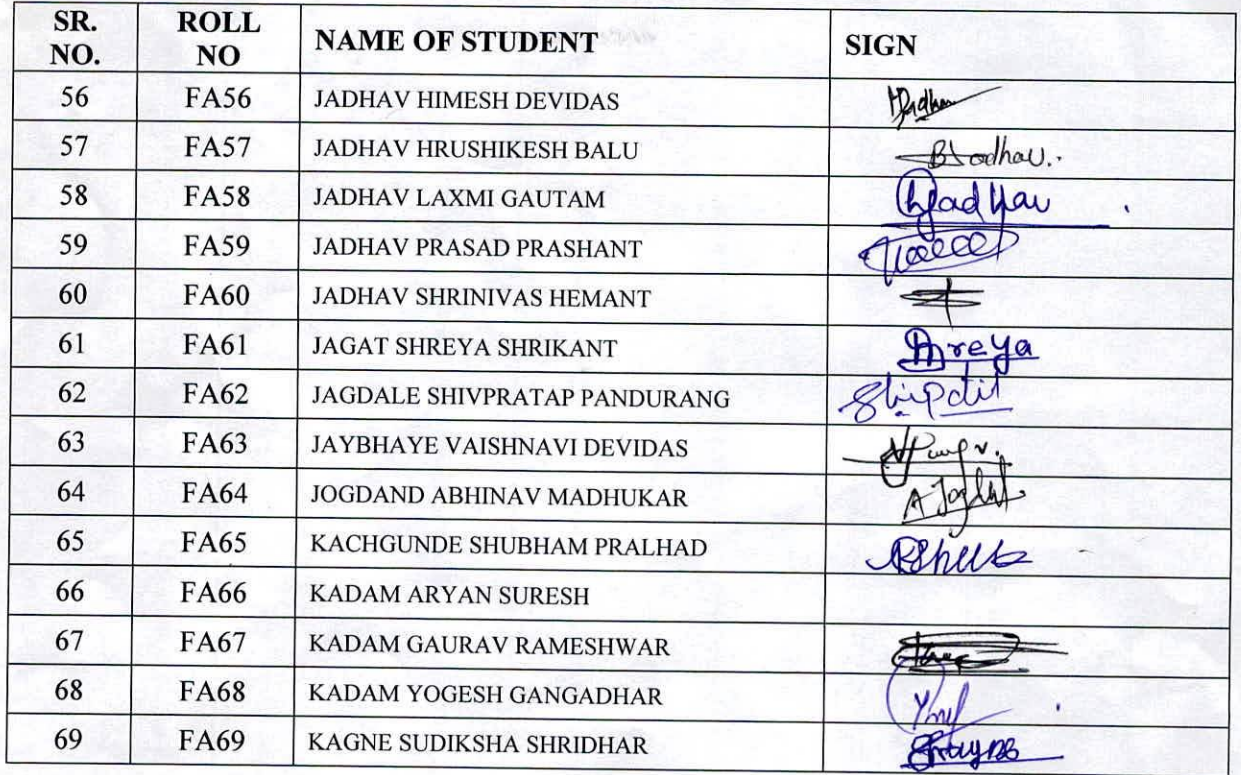 SR. NO. ROLL NO NAME OF STUDENT SIGN
56 FA56 JADHAV HIMESH DEVIDAS
57 FA57 JADHAV HRUSHIKESH BALU
58 FA58 JADHAV LAXMI GAUTAM
59 FA59 JADHAV PRASAD PRASHANT
60 FA60 JADHAV SHRINIVAS HEMANT
61 FA61 JAGAT SHREYA SHRIKANT Shreya
62 FA62 JAGDALE SHIVPRATAP PANDURANG
63 FA63 JAYBHAYE VAISHNAVI DEVIDAS
64 FA64 JOGDAND ABHINAV MADHUKAR
65 FA65 KACHGUNDE SHUBHAM PRALHAD
66 FA66 KADAM ARYAN SURESH
67 FA67 KADAM GAURAV RAMESHWAR
68 FA68 KADAM YOGESH GANGADHAR
69 FA69 KAGNE SUDIKSHA SHRIDHAR